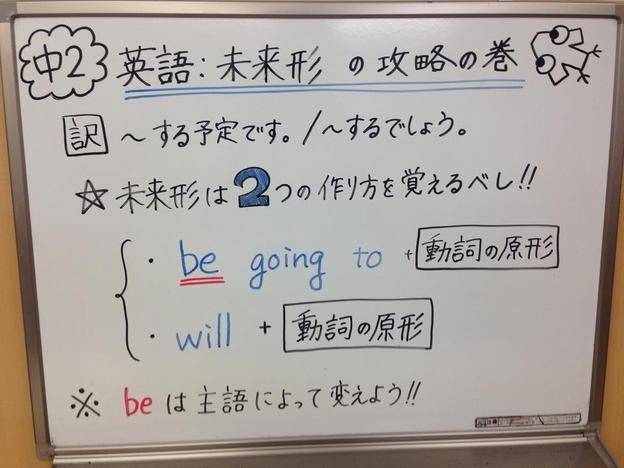 中2 英語:未来形 の攻略の巻
訳 ～する予定です。/～するでしょう。
☆ 未来形は2つの作り方を覚えるべし!!
・ be going to + 動詞の原形
・ will + 動詞の原形
※ beは主語によって変えよう!!